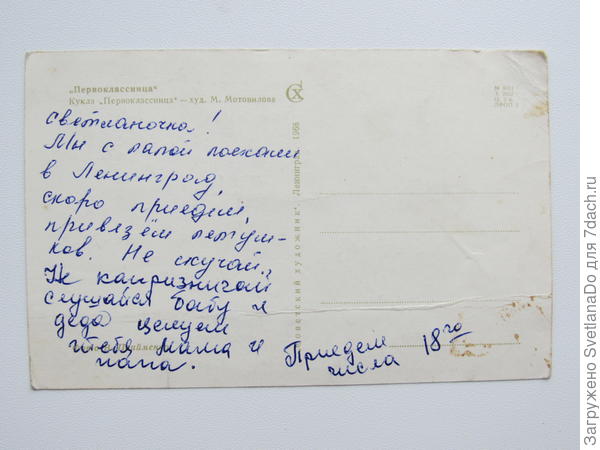 „Первоклассница"
Кукла „Первоклассница" — худ. М. Мотовилова
Светланочка!
Мы с папой поехали
в Ленинград,
скоро приедем,
привезём петуш-
ков. Не скучай,
Не капризничай
Слушайся бабу и
деда целуем
тебя мама и
папа.
Приедем 18го
числа
Советский художник". Ленинград 1968
Загружено SvetlanaDo для 7dach.ru